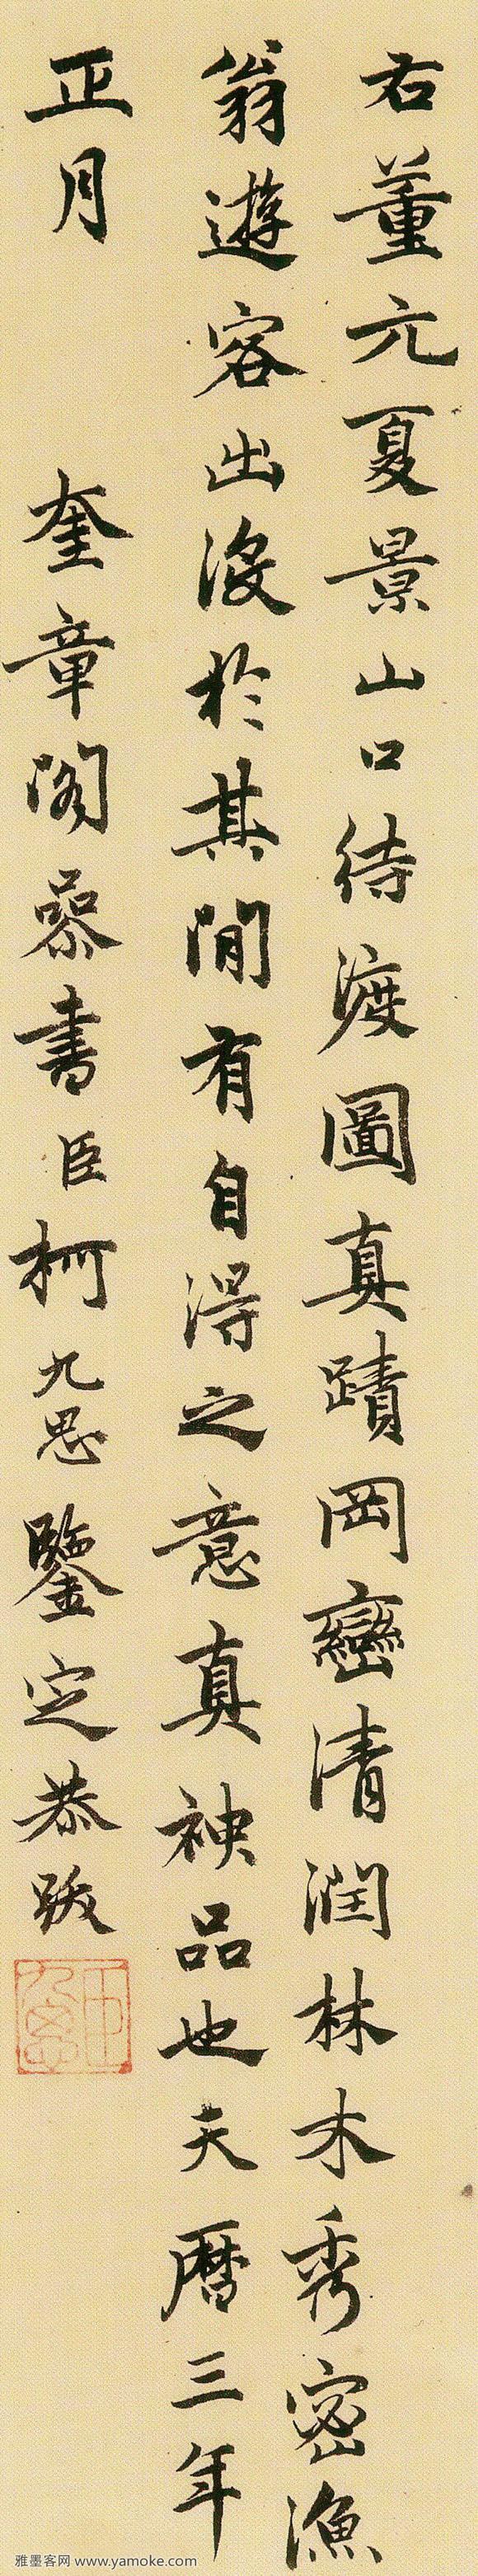 右董元夏景山口待渡圖真蹟岡巒清潤林木秀密漁
翁遊客出沒於其間有自得之意真神品也天曆三年
正月 奎章閣參書臣柯九思鑒定恭跋
臣九思
雅墨客网 www.yamoke.com